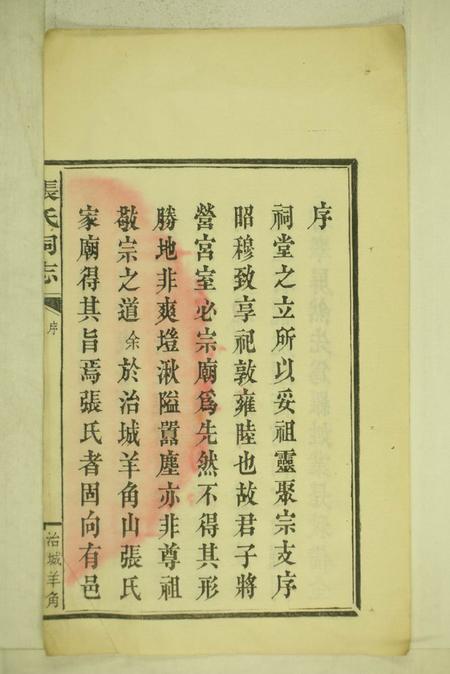 序
祠堂之立所以妥祖靈聚宗支序
昭穆致享祀敦雍睦也故君子將
營宮室必宗廟爲先然不得其形
勝地非爽塏湫隘囂塵亦非尊祖
敬宗之道余於治城羊角山張氏
家廟得其旨焉張氏者固向有邑
張氏祠志
序
治城羊角